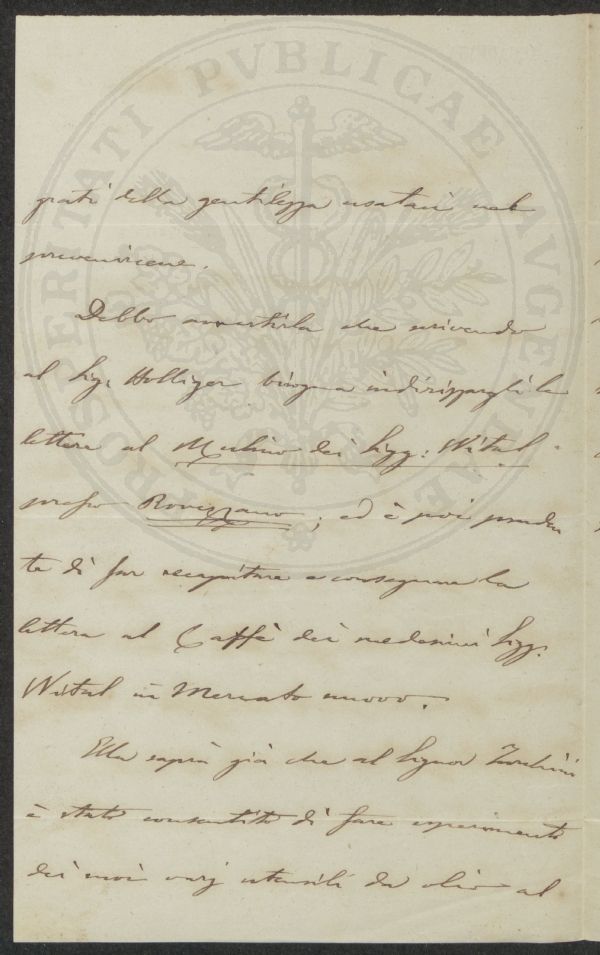 PROSPERITATI PVBLICAE AVGENDAE
grati della gentilezza usataci nel
prevenircene.
Debbo avvertirla che scrivendo
al Sig. Holliger bisogna indirizzargli le
lettere al Mulino dei Sigg: Wital
presso Rovezzano; ed è poi pruden
te di far recapitare e consegnare la
lettera al Caffè dei medesimi Sigg.
Wital in Mercato nuovo.
Ella saprà già che al Signor
è stato consentito di fare esperimento
dei suoi varj utensili da olio al